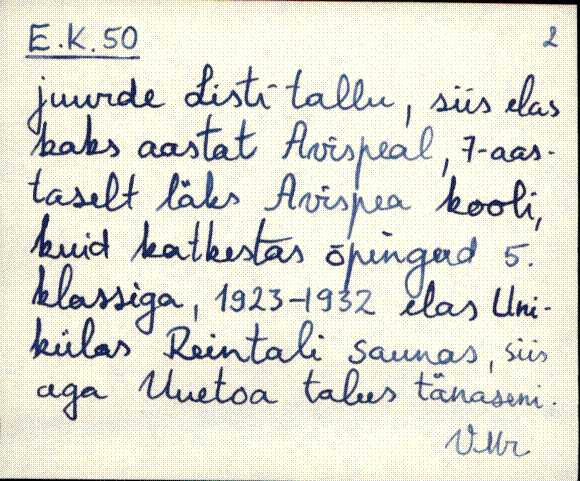 E.K.50 2
juurde Listi tallu, siis elas
kaks aastat Avispeal, 7-aas-
taselt läks Avispea kooli,
kuid katkestas õpingud 5.
klassiga, 1923-1932 elas Uni-
külas Reintali saunas, siis
aga Uuetoa talus tänaseni.
VMr